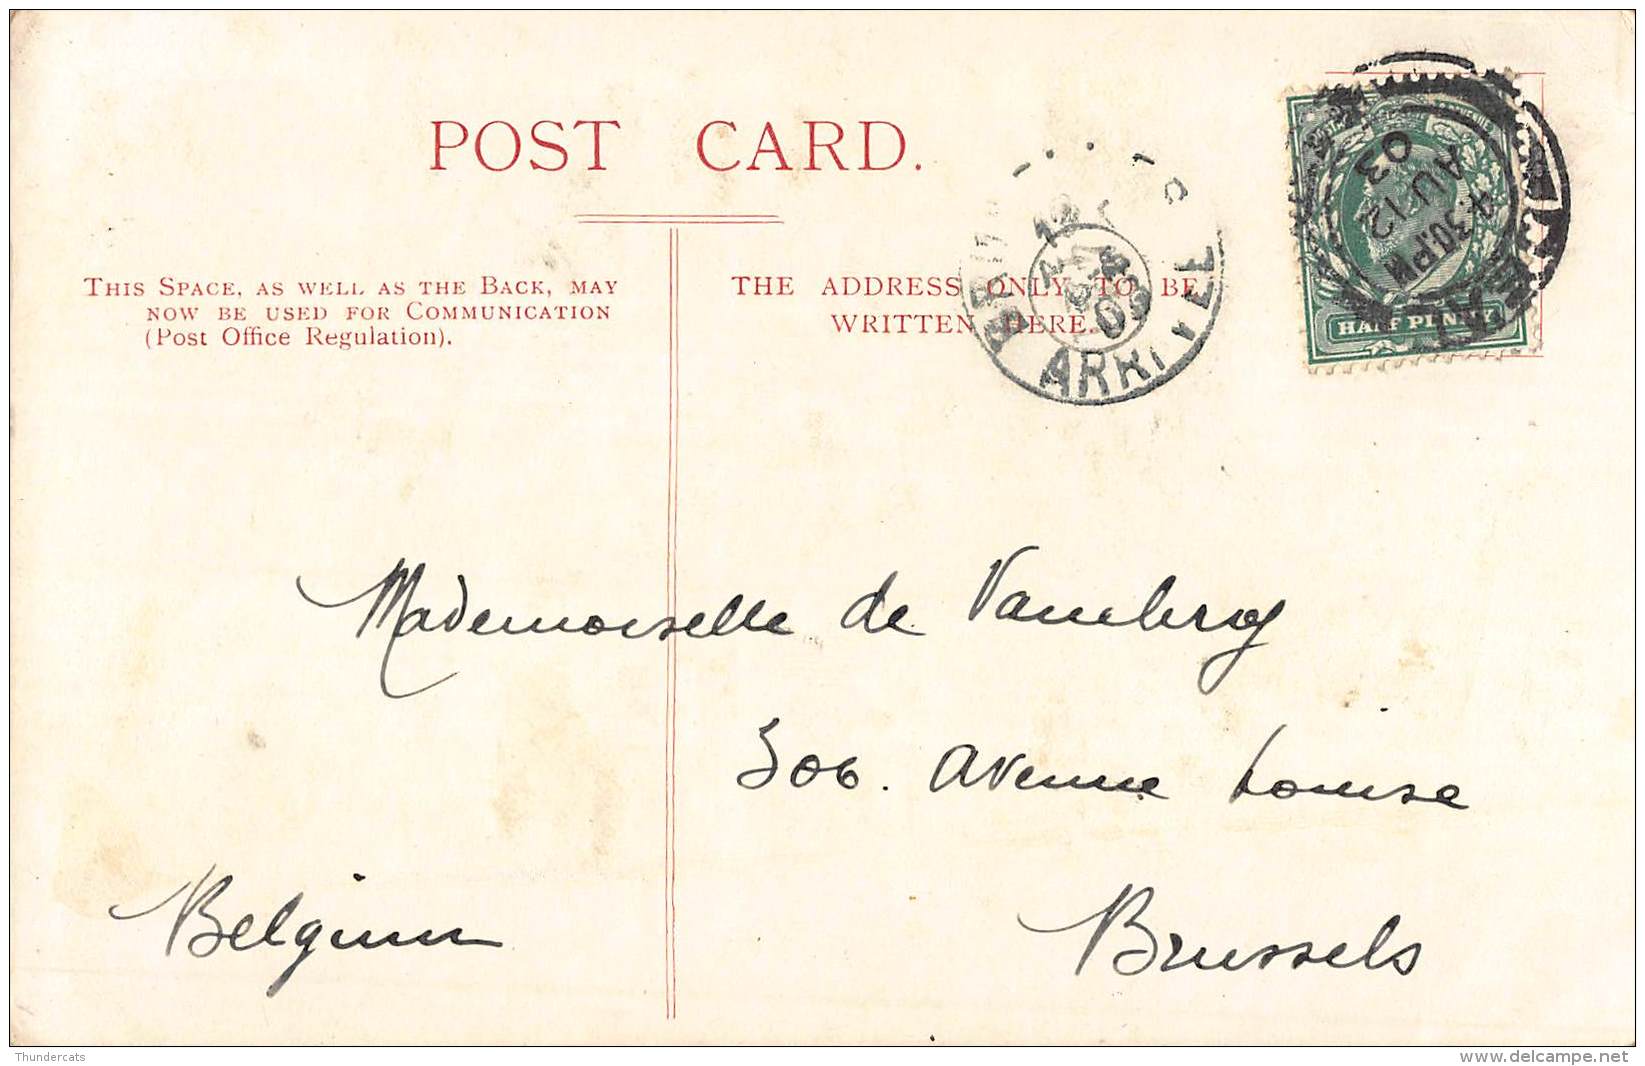 POST CARD.
THIS SPACE, AS WELL AS THE BACK, MAY
NOW BE USED FOR COMMUNICATION
(Post Office Regulation).
THE ADDRESS ONLY TO BE
WRITTEN HERE.
ARRIVEE
12
03
4.30PM
AU 12
03
HALF PENNY
Mademoiselle de Vambroy
306. Avenue Louise
Brussels
Belgium
Thundercats
delcampe.net